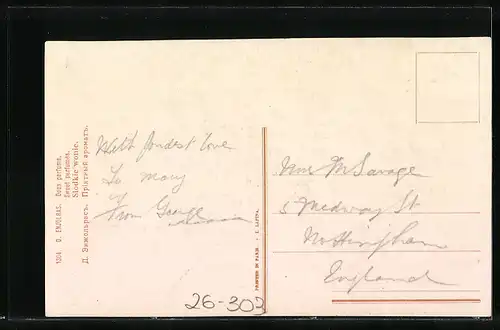 1204 D. ENJOLRAS. Doux parfums.
Sweet perfumes.
Słodkie wonie.
Д. Энжольрасъ. Пріятный ароматъ.
With fondest love
To Mary
From George
PRINTED IN PARIS. - I. LAPINA.
Mrs M Savage
5 Medway St
Nottingham
England
26-302